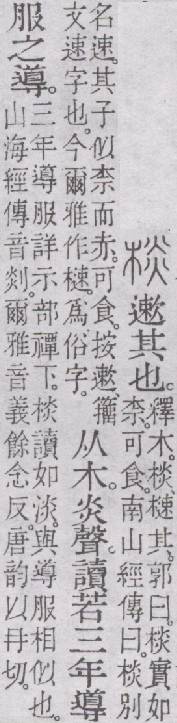 棪 遬其也。釋木。棪𣙙其。郭曰。棪實如
柰。可食。南山經傳曰。棪別
名速。其子似柰而赤。可食。按遬、籒
文速字也。今爾雅作𣙙。爲俗字。
从木。炎聲。讀若三年導
服之導。三年導服詳示部禫下。棪讀如淡。與導服相似也。
山海經傳音剡。爾雅音義餘念反。唐韵以冉切。